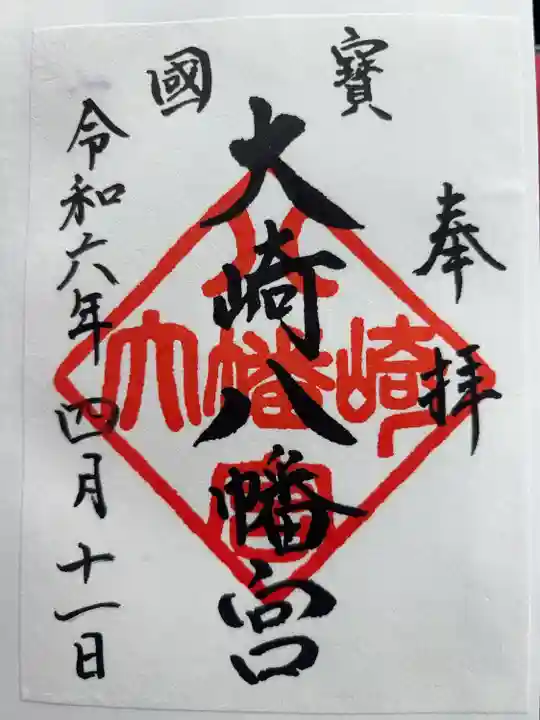 奉拝
國寳
大崎八幡宮
令和六年四月十一日
大崎八幡宮